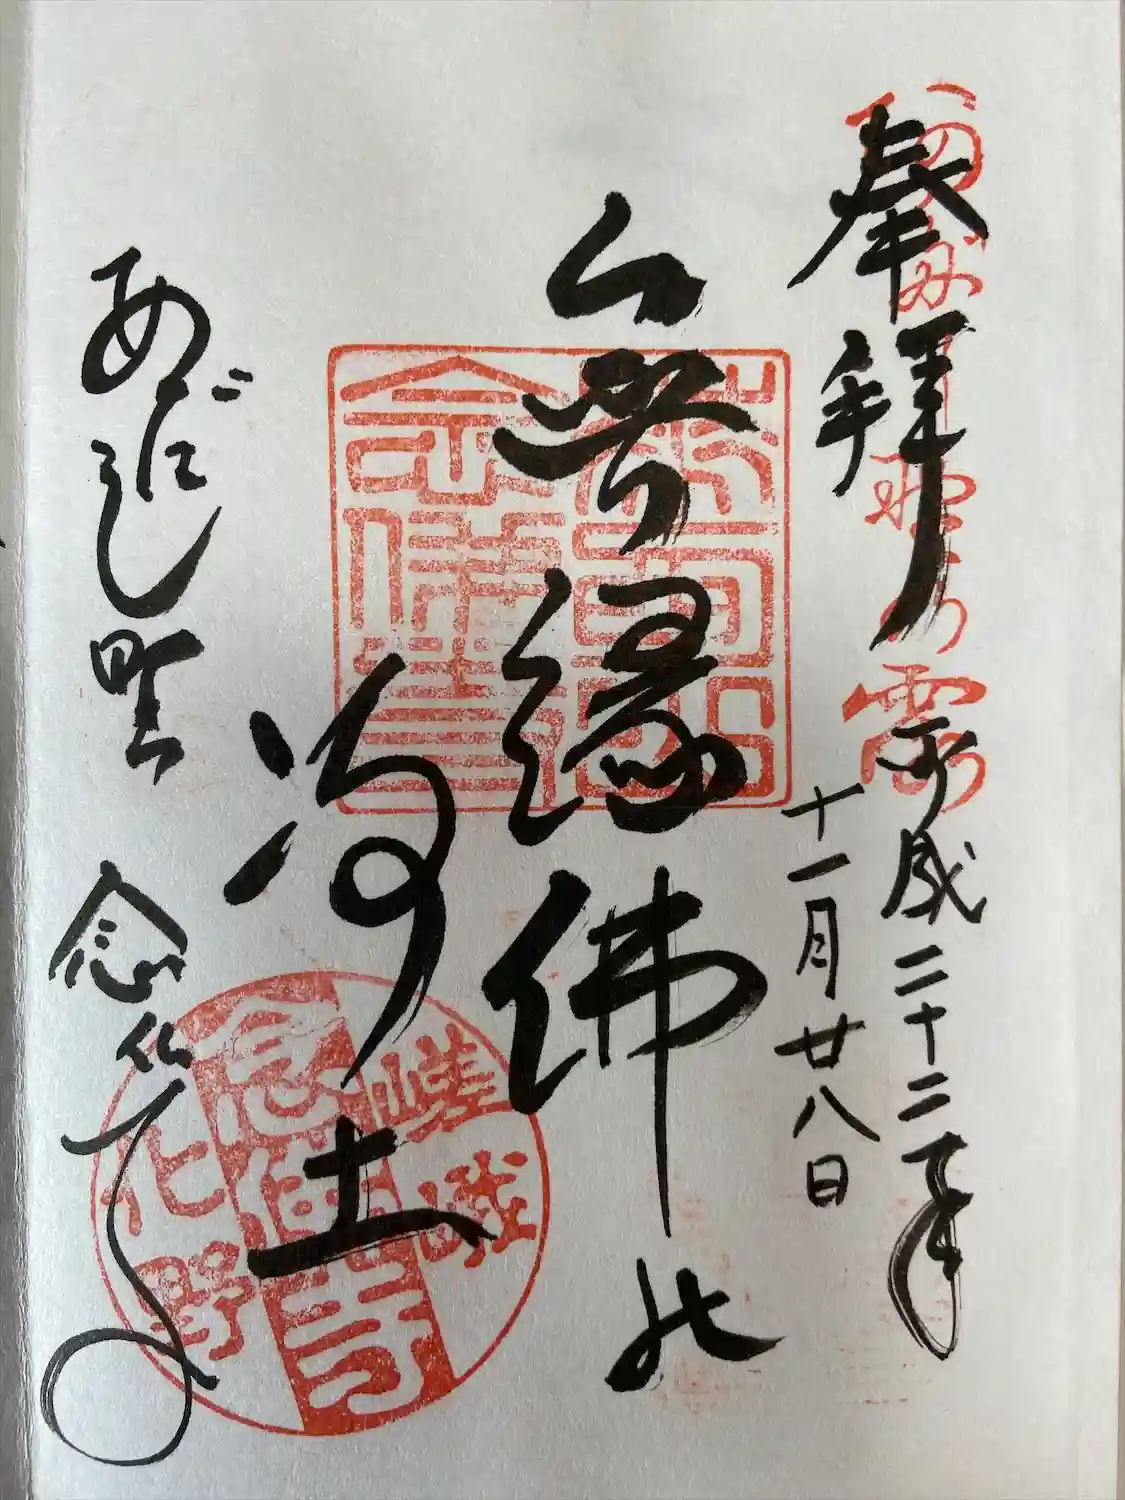 奉拝
平成二十二年
十一月廿八日
無縁佛の
浄土
あだし野
念仏寺
嵯峨
念佛寺
化野